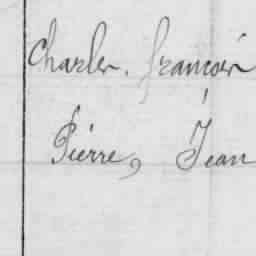 Charles. françois
Pierre, Jean